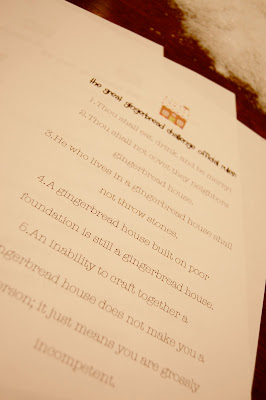 the great gingerbread challenge official rules:
1. Thou shall eat, drink, and be merry!
2. Thou shall not covet they neighbors
gingerbread house.
3. He who lives in a gingerbread house shall
not throw stones.
4. A gingerbread house built on poor
foundation is still a gingerbread house.
5. An inability to craft together a
gingerbread house does not make you a
person; it just means you are grossly
incompetent.